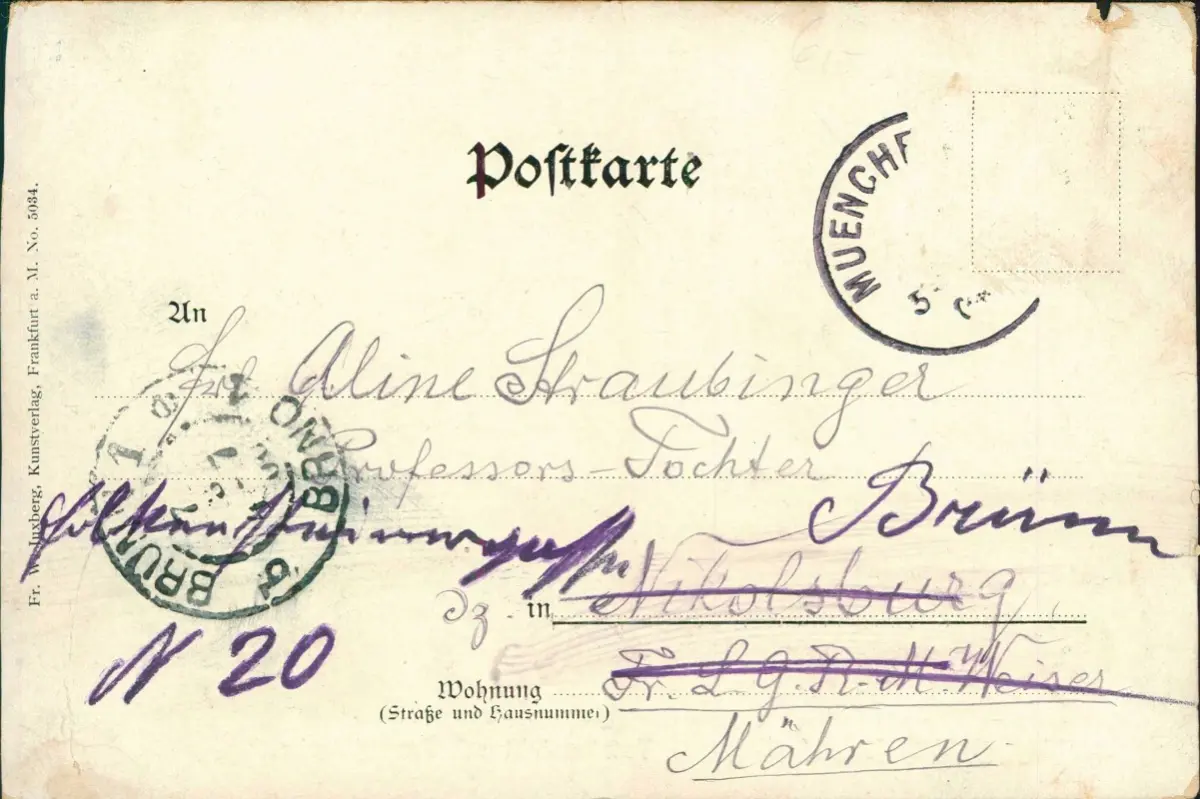 Postkarte
MUENCHE
5
An
Frl Aline Straubinger
Professors-Tochter
Brünn
BRÜNN BRNO
1
8
N 20
in Nikolsburg
Wohnung Fr. L. G. R. M. Weiser
(Straße und Hausnummer)
Mähren
Fr. W. Juxberg, Kunstverlag, Frankfurt a. M. No. 5034.